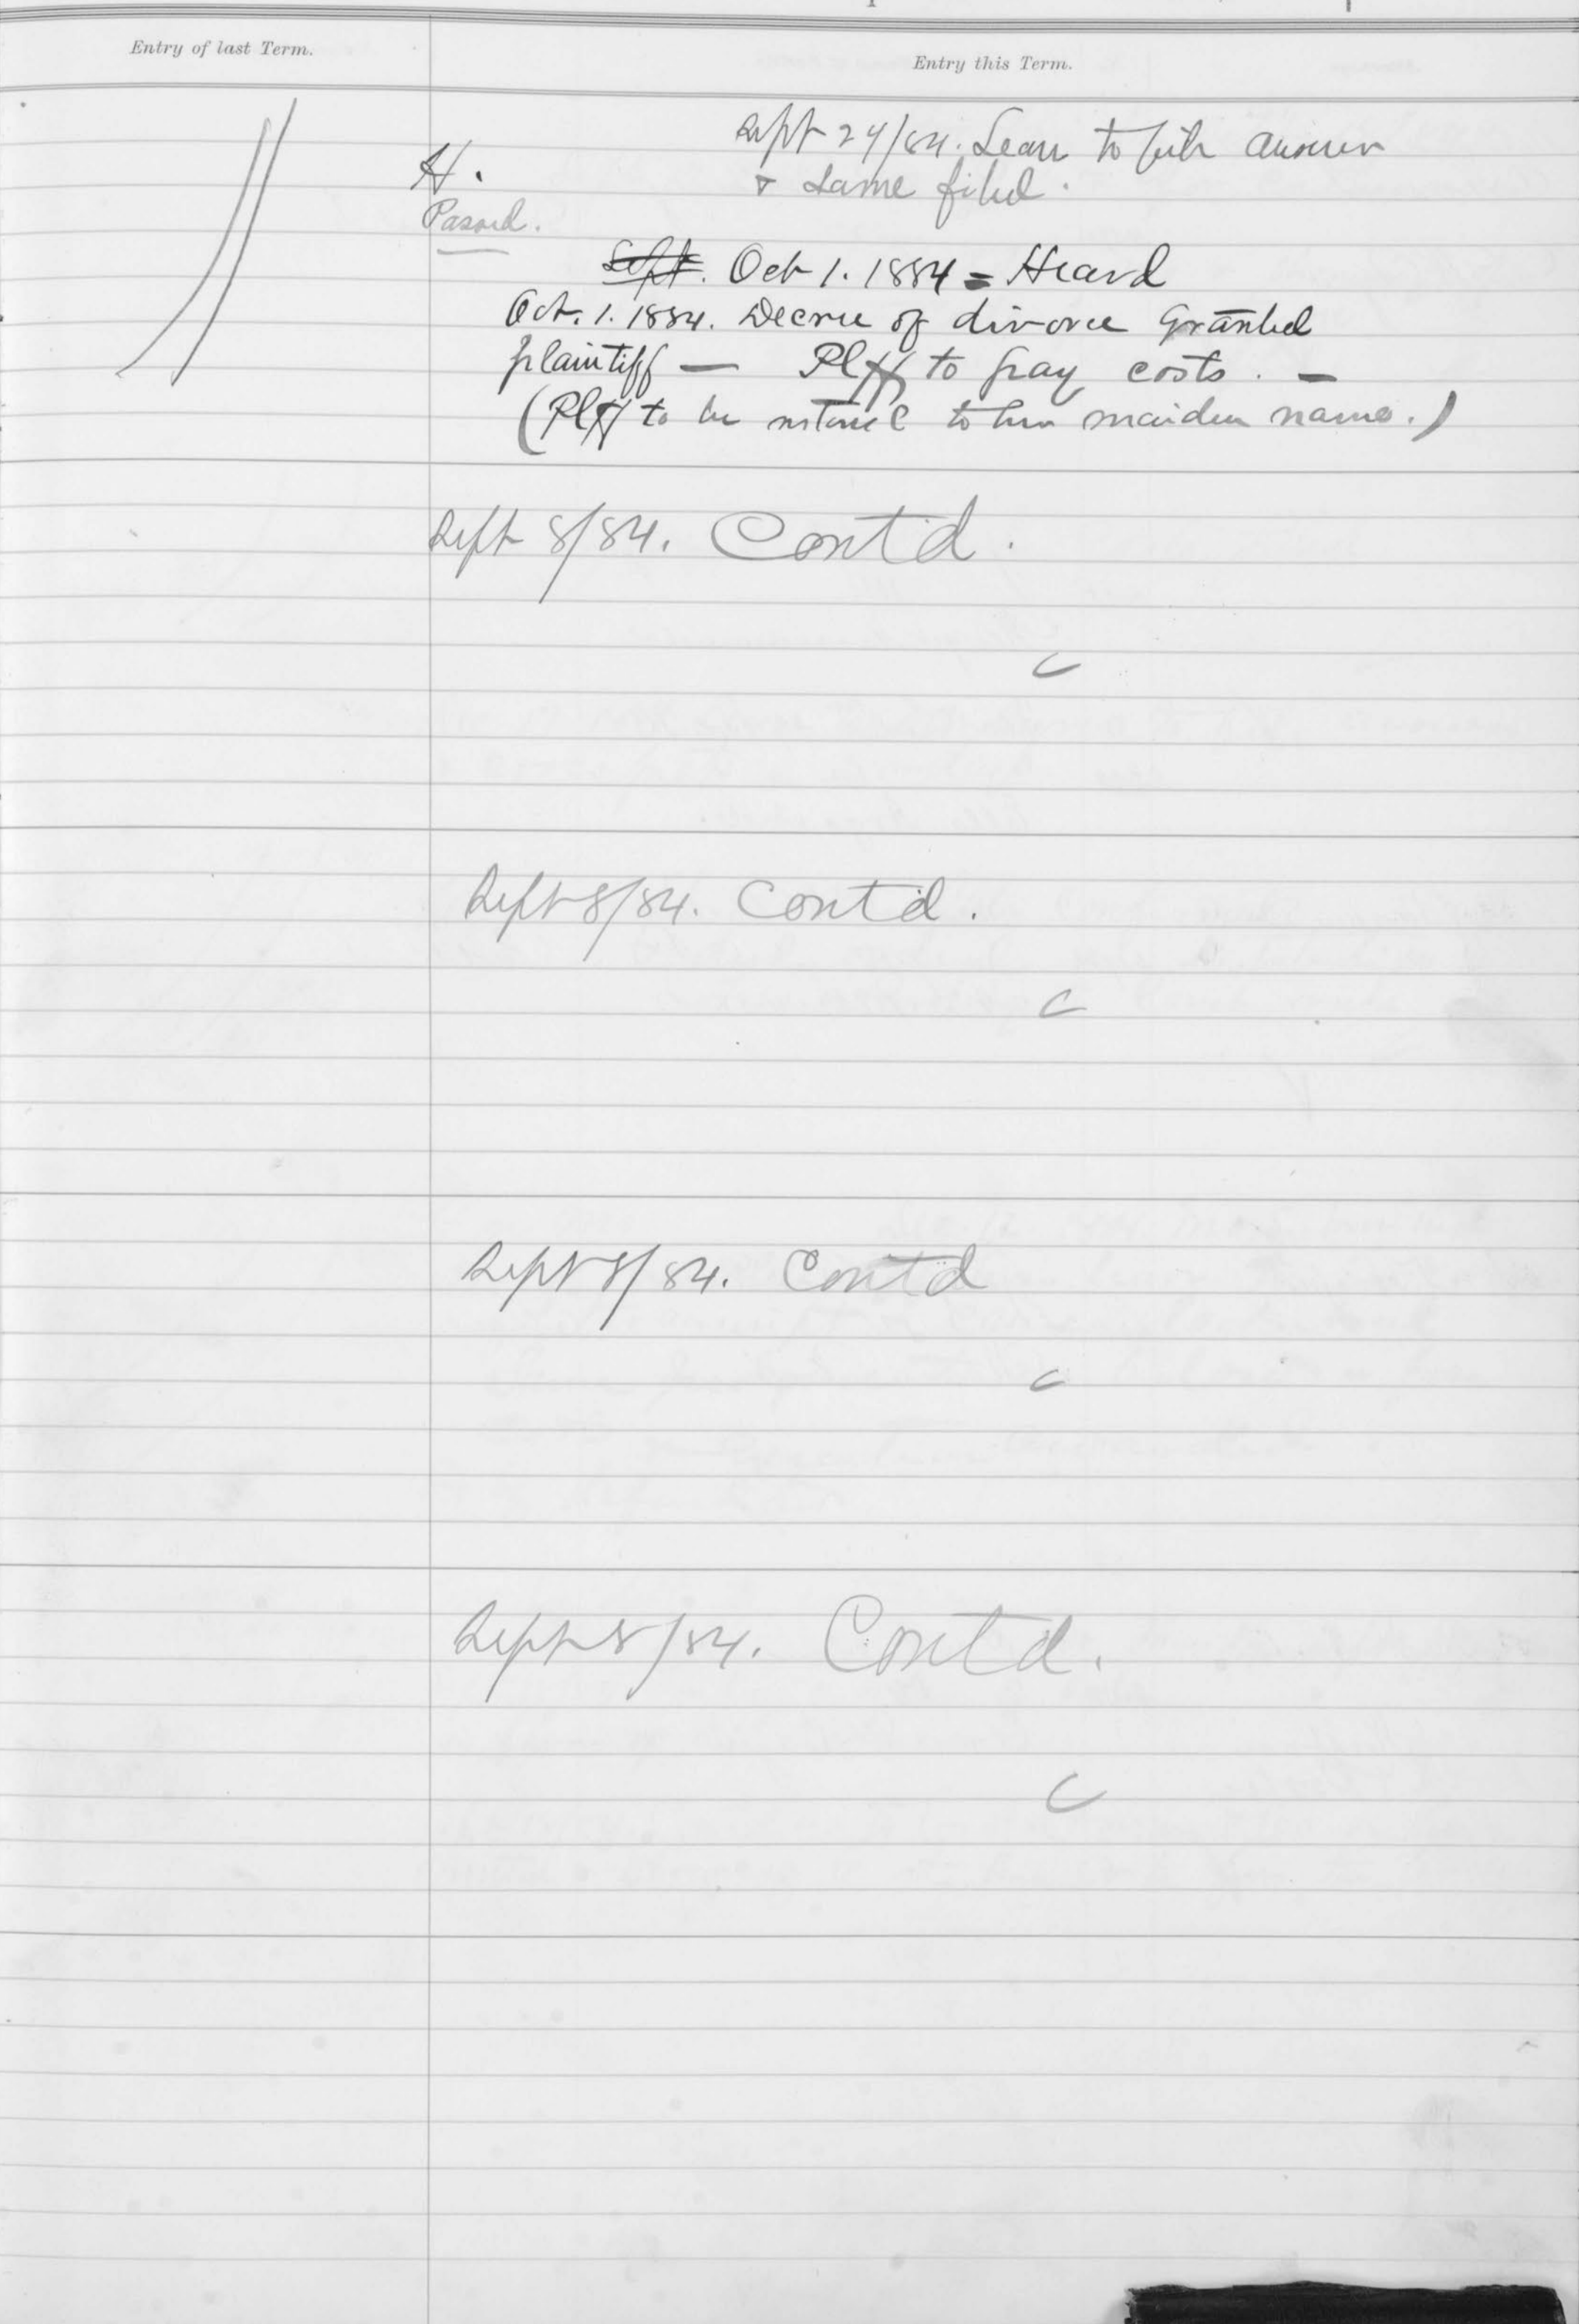 Entry of last Term.
Entry this Term.
Sept 24/84. Leave to file answer
& same filed.
H.
Passed.
Sept. Oct 1. 1884 = Heard
Oct. 1. 1884. Decree of divorce granted
plaintiff — Plff to pay costs. —
(Plff to be restored to her maiden name.)
Sept 8/84. Cont'd.
C
Sept 8/84. Cont'd.
C
Sept 8/84. Cont'd
C
Sept 8/84. Contd.
C